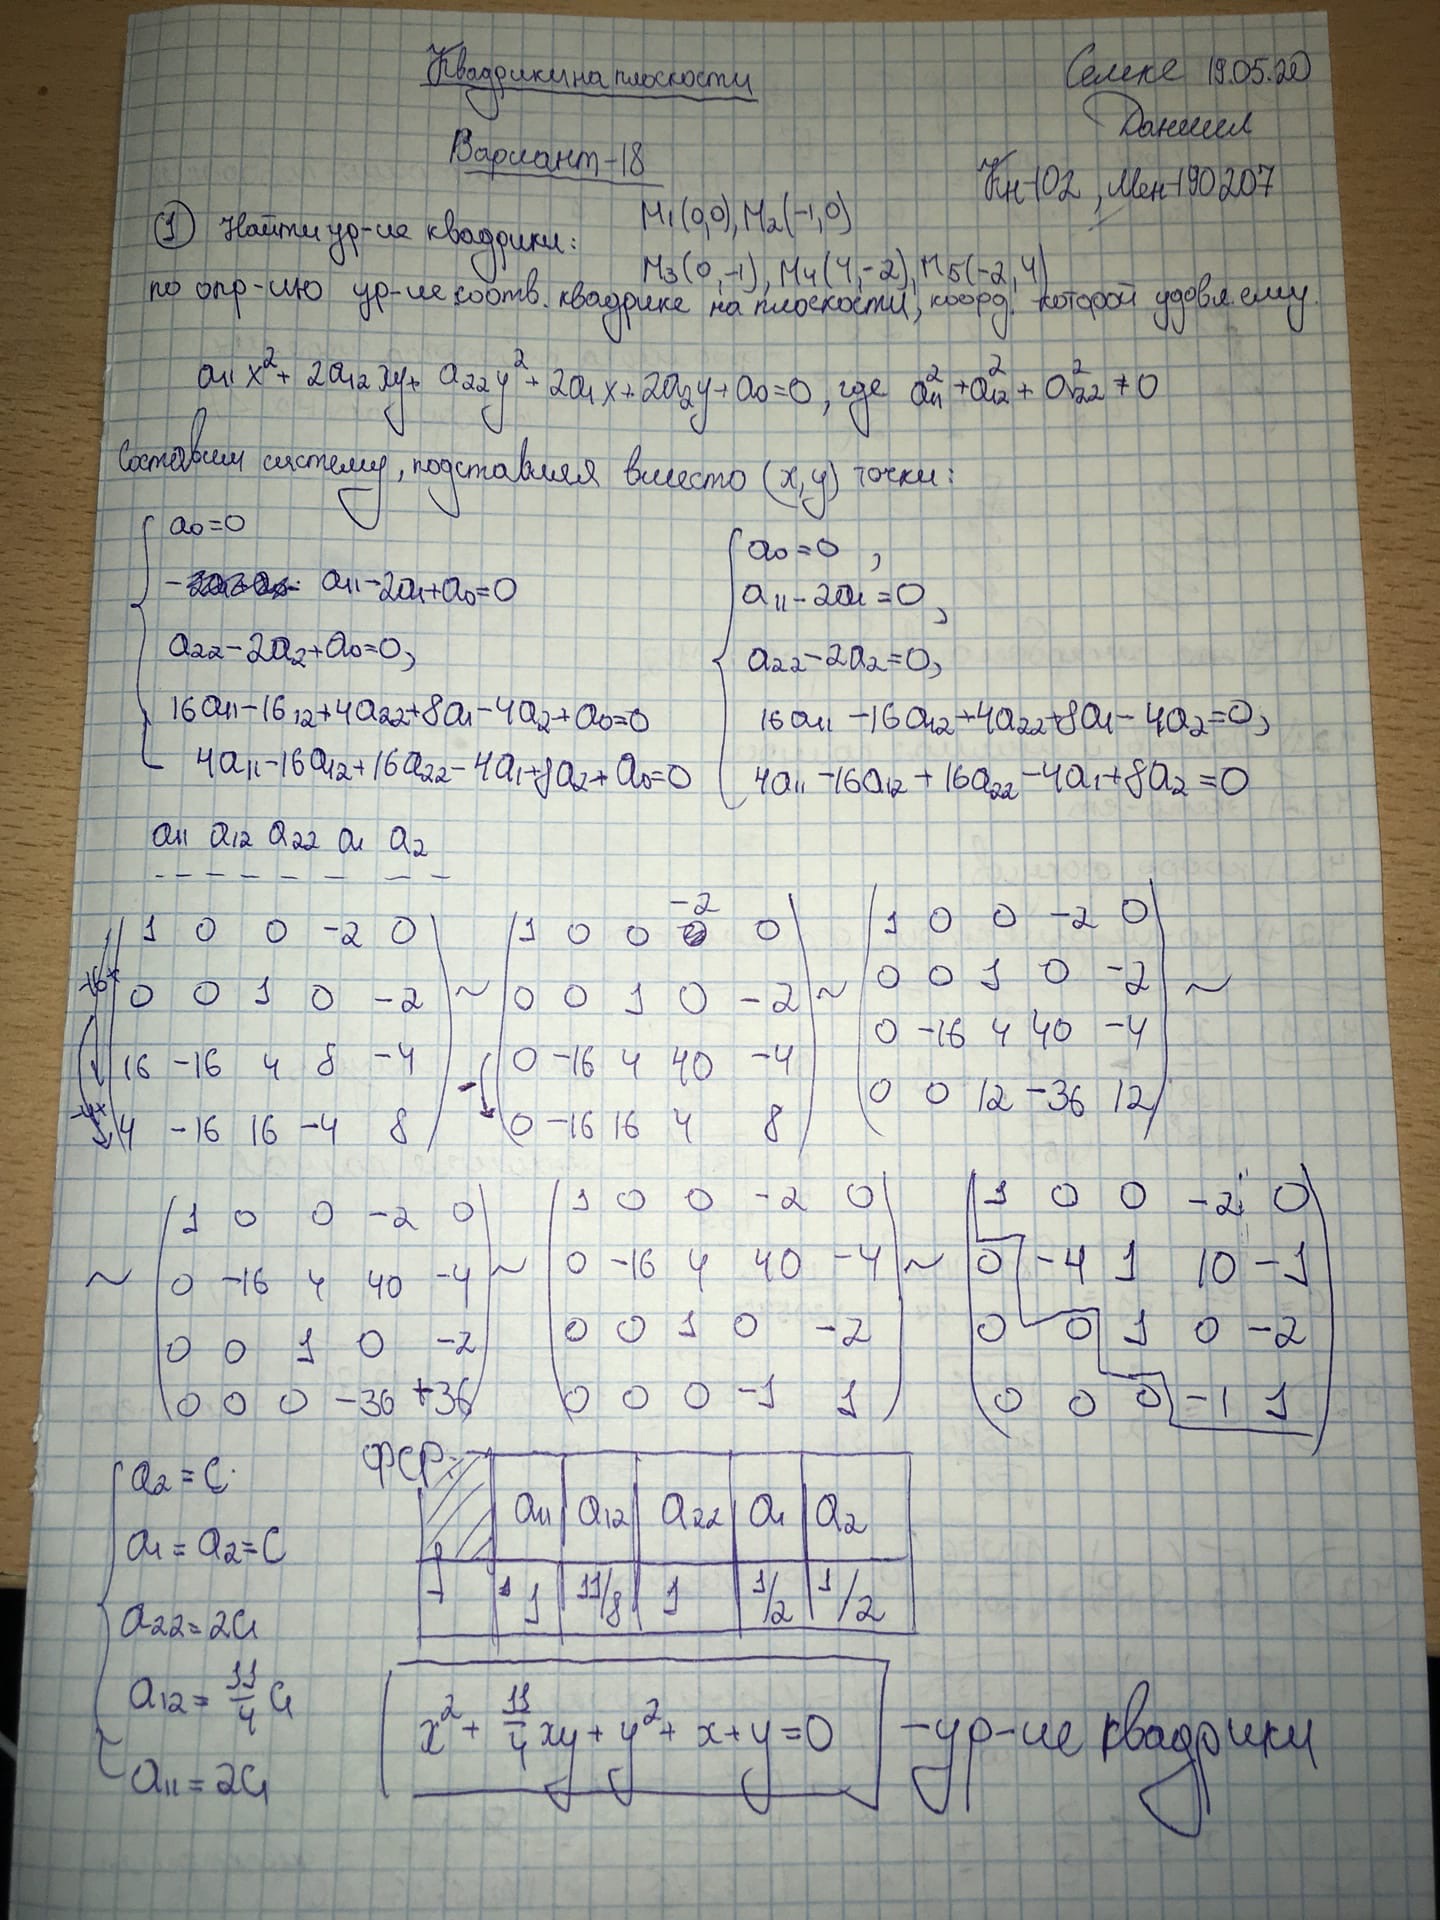 Квадрики на плоскости
Селске 19.05.20
Даниил
Вариант-18
Кн-102, Мен-190207
① Найти ур-ие квадрики:
M1(0,0), M2(-1,0)
M3(0,-1), M4(4,-2), M5(-2,4)
по опр-ию ур-ие соотв. квадрике на плоскости, коорд. которой удовл. ему.
a11x²+2a12xy+a22y²+2a1x+2a2y+a0=0, где a11²+a12²+a22²≠0
Составим систему, подставляя вместо (x,y) точки:
a0=0
a11-2a1+a0=0
a22-2a2+a0=0,
16a11-16₁₂+4a22+8a1-4a2+a0=0
4a11-16a12+16a22-4a1+8a2+a0=0
a0=0,
a11-2a1=0,
a22-2a2=0,
16a11-16a12+4a22+8a1-4a2=0,
4a11-16a12+16a22-4a1+8a2=0
a11 a12 a22 a1 a2
1 0 0 -2 0
0 0 1 0 -2
16 -16 4 8 -4
4 -16 16 -4 8
~
1 0 0 -2 0
0 0 1 0 -2
0 -16 4 40 -4
0 -16 16 4 8
~
1 0 0 -2 0
0 0 1 0 -2
0 -16 4 40 -4
0 0 12 -36 12
~
~
1 0 0 -2 0
0 -16 4 40 -4
0 0 1 0 -2
0 0 0 -36 +36
~
1 0 0 -2 0
0 -16 4 40 -4
0 0 1 0 -2
0 0 0 -1 1
~
1 0 0 -2 0
0 -4 1 10 -1
0 0 1 0 -2
0 0 0 -1 1
a2=C1
a1=a2=C1
a22=2C1
a12=11/4 C1
a11=2C1
ФСР:
a11 a12 a22 a1 a2
1 11/8 1 1/2 1/2
x²+11/4xy+y²+x+y=0 -ур-ие квадрики